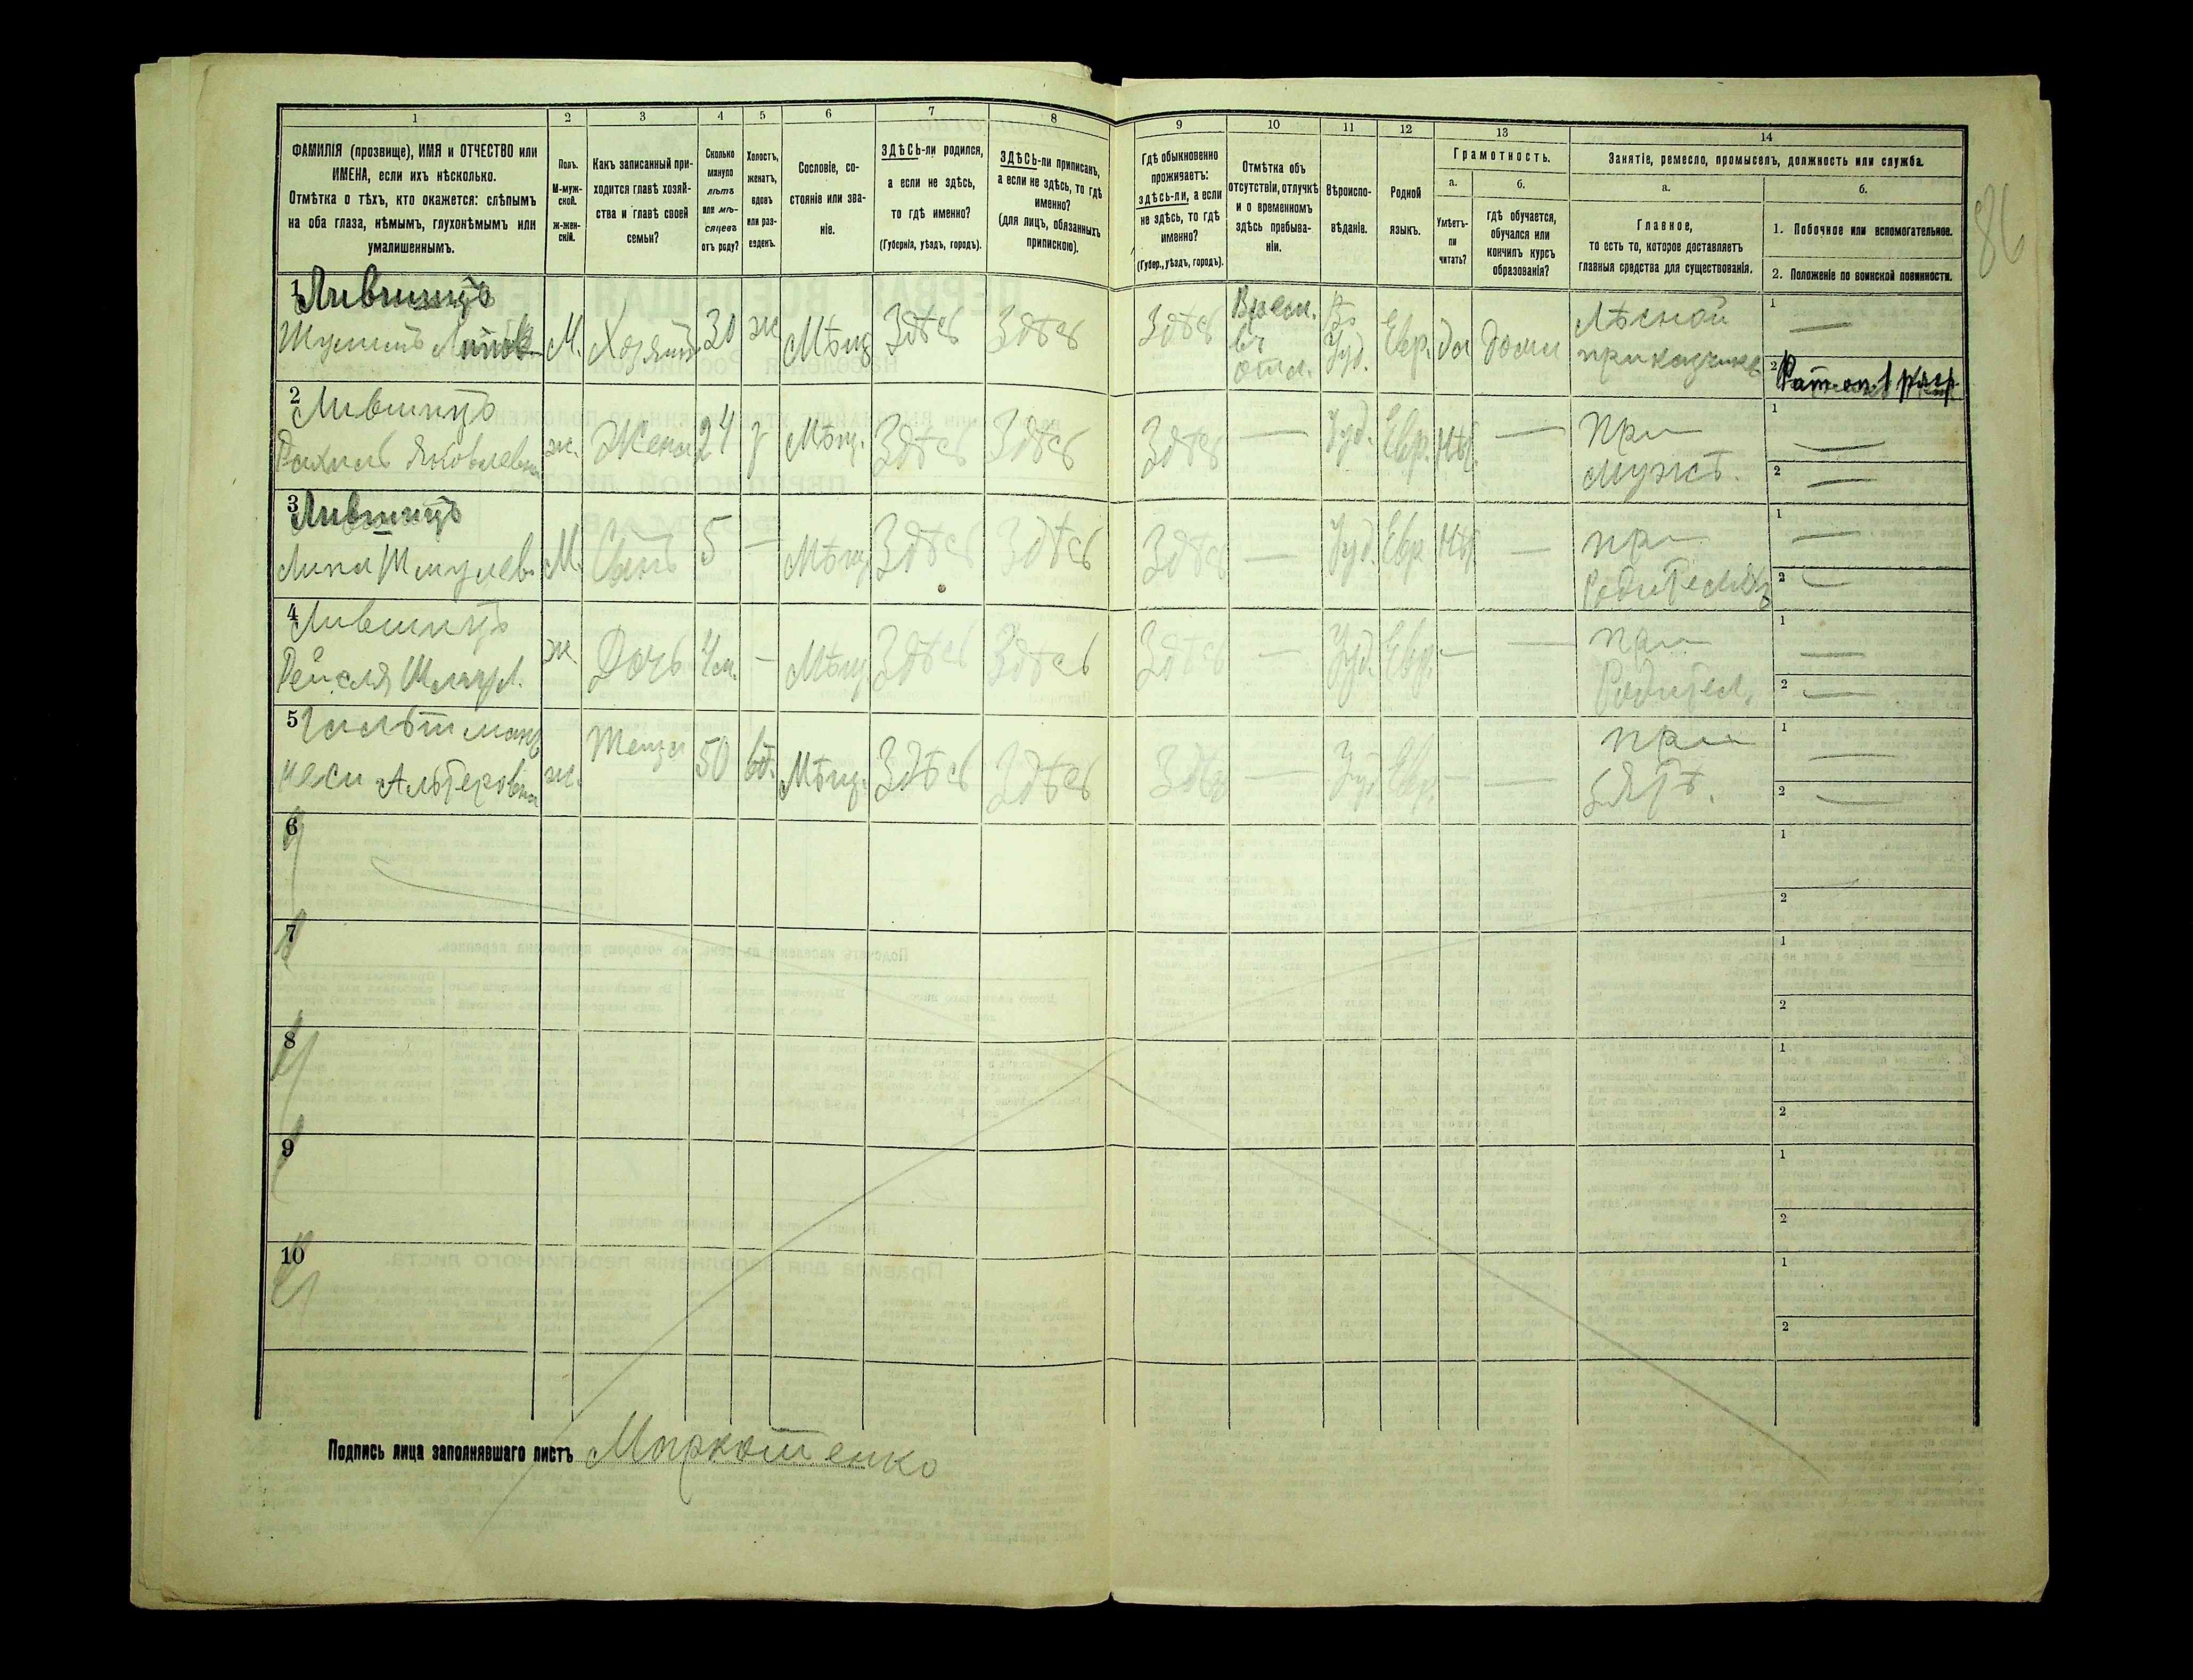 1 2 3 4 5 6 7 8 9 10 11 12 13 14
ФАМИЛІЯ (прозвище), ИМЯ и ОТЧЕСТВО или
ИМЕНА, если ихъ нѣсколько.
Отмѣтка о тѣхъ, кто окажется: слѣпымъ
на оба глаза, нѣмымъ, глухонѣмымъ или
умалишеннымъ.
Полъ.
М-муж-
ской.
ж-жен-
скій.
Какъ записанный при-
ходится главѣ хозяй-
ства и главѣ своей
семьи?
Сколько
минуло
лѣтъ
или мѣ-
сяцевъ
отъ роду?
Холостъ,
женатъ,
вдовъ
или раз-
веденъ.
Сословіе, со-
стояніе или зва-
ніе.
ЗДѢСЬ-ли родился,
а если не здѣсь,
то гдѣ именно?
(Губернія, уѣздъ, городъ).
ЗДѢСЬ-ли приписанъ,
а если не здѣсь, то гдѣ
именно?
(для лицъ, обязанныхъ
припискою).
Гдѣ обыкновенно
проживаетъ:
здѣсь-ли, а если
не здѣсь, то гдѣ
именно?
(Губер., уѣздъ, городъ).
Отмѣтка объ
отсутствіи, отлучкѣ
и о временномъ
здѣсь пребыва-
ніи.
Вѣроиспо-
вѣданіе.
Родной
языкъ.
Грамотность.
а.
Умѣетъ-
ли
читать?
б.
гдѣ обучается,
обучался или
кончилъ курсъ
образованія?
Занятіе, ремесло, промыселъ, должность или служба.
а.
Главное,
то есть то, которое доставляетъ
главныя средства для существованія.
б.
1. Побочное или вспомогательное.
2. Положеніе по воинской повинности.
86
1 Лившицъ
М. Хозяинъ 30 ж Мѣщ Здѣсь Здѣсь Здѣсь Врем. въ отл. Іуд. Евр. да дома Лѣсной приказчикъ 1 —
2
2 Лившицъ
Рахиль Яковлевна ж. Жена 24 з Мѣщ. Здѣсь Здѣсь Здѣсь — Іуд. Евр. нѣт. — При мужѣ. 1 —
2 —
3 Лившицъ
Липа Шмулев. М. Сынъ 5 — Мѣщ Здѣсь Здѣсь Здѣсь — Іуд. Евр. нѣт — при Родителяхъ 1 —
2 —
4 Лившицъ
Рейзля Шмул. ж. Дочь 4м. — Мѣщ Здѣсь Здѣсь Здѣсь — Іуд. Евр. — — при Родител, 1 —
2 —
5
Альтеровна ж. Теща 50 вд. Мѣщ. Здѣсь Здѣсь Здѣсь — Іуд Евр. — — при зятѣ. 1 —
2 —
6 1
2
7 1
2
8 1
2
9 1
2
10 1
2
Подпись лица заполнявшаго листъ Маркотенко